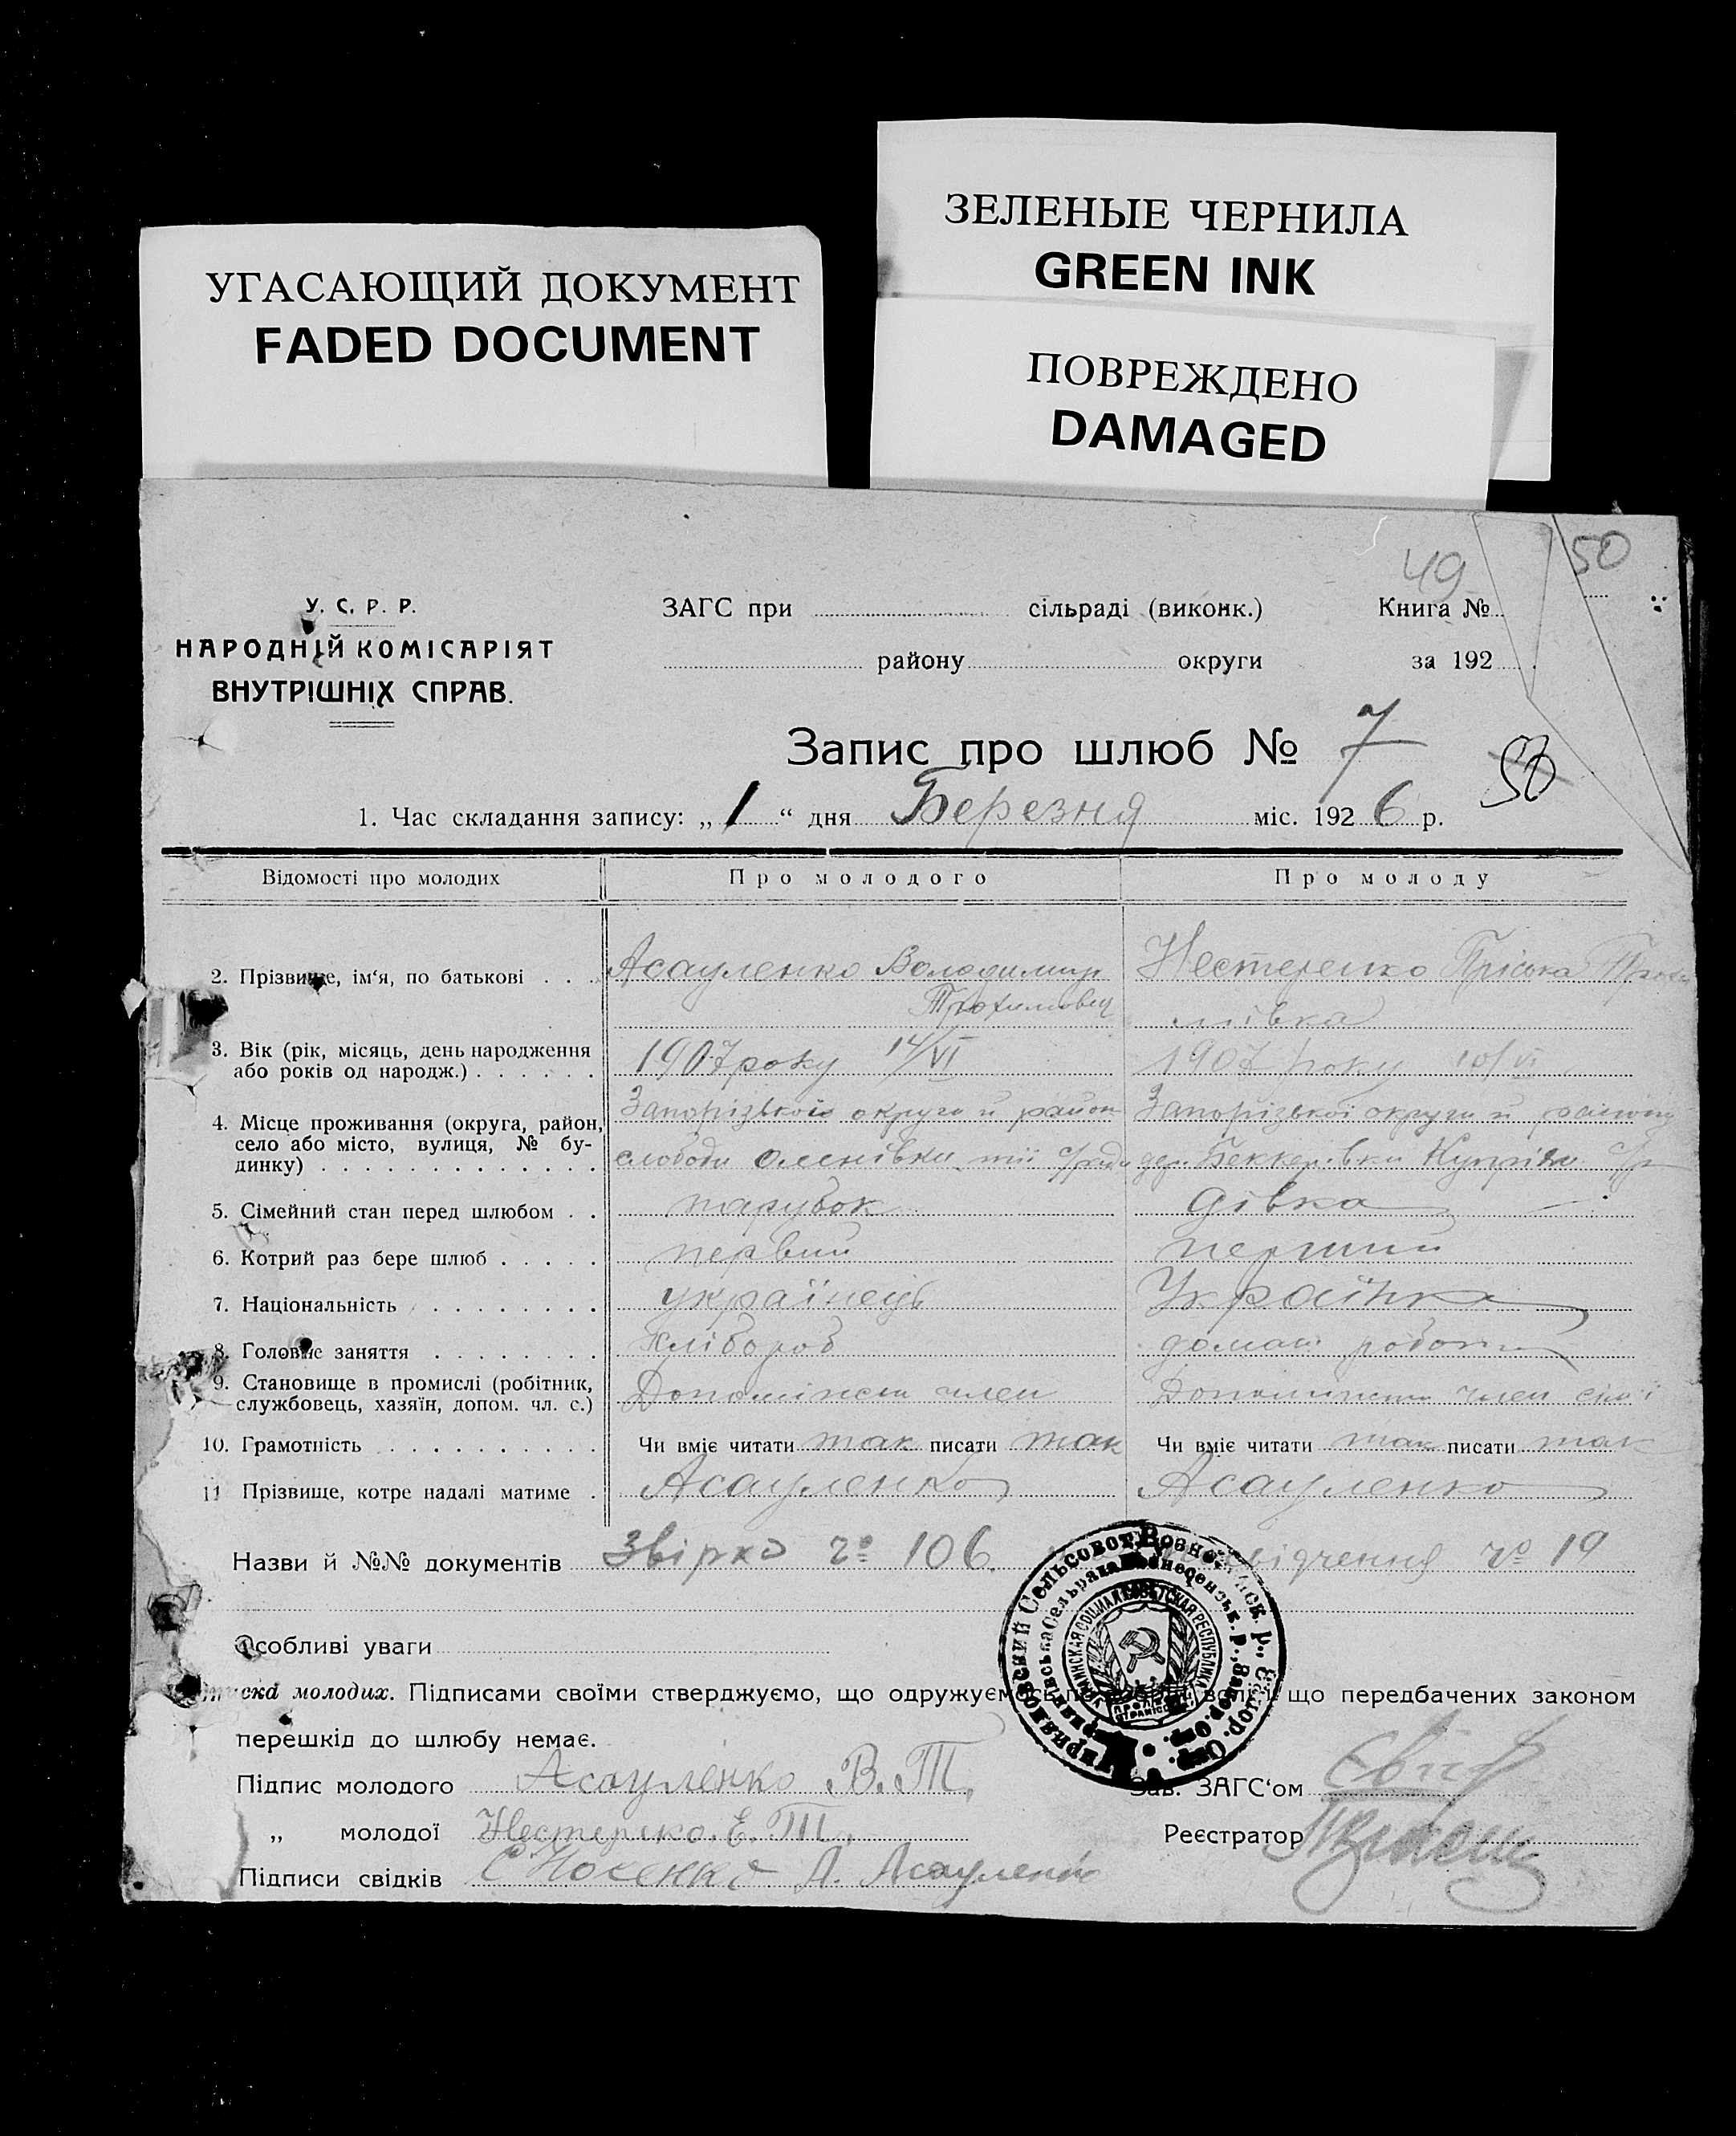 ЗЕЛЕНЫЕ ЧЕРНИЛА
GREEN INK
УГАСАЮЩИЙ ДОКУМЕНТ
FADED DOCUMENT
ПОВРЕЖДЕНО
DAMAGED
49 50
У. С. Р. Р.
НАРОДНІЙ КОМІСАРІЯТ
ВНУТРІШНІХ СПРАВ.
ЗАГС при сільраді (виконк.) Книга №
району округи за 192
Запис про шлюб № 7
50
1. Час складання запису: „ 1 “ дня Березня міс. 192 6 р.
Відомості про молодих Про молодого Про молоду
2. Прізвище, ім‘я, по батькові . . . Асауленко Володимир Нестеренко Пріська
Трохимович
3. Вік (рік, місяць, день народження 1907 року 14/VI 1907 року 10/VI
або років од народж.) . . . . . .
4. Місце проживання (округа, район, Запорізької округи й район Запорізької округи й району
село або місто, вулиця, № бу-
динку) . . . . . . . . . . . . . слободи Оленівки тії с/ради дер. Беккерівки
5. Сімейний стан перед шлюбом . . парубок дівка
6. Котрий раз бере шлюб . . . . . первий перший
7. Національність . . . . . . . . українець Українка
8. Головне заняття . . . . . . . . хлібороб домаш робот
9. Становище в промислі (робітник, Допоміжен член Допоміжен член сім'ї
службовець, хазяїн, допом. чл. с.)
10. Грамотність . . . . . . . . . . . Чи вміє читати так писати так Чи вміє читати так писати так
11 Прізвище, котре надалі матиме . Асауленко Асауленко
Назви й №№ документів Звірка № 106. відчення № 19
Особливі уваги
молодих. Підписами своїми стверджуємо, що одружуємось волі і що передбачених законом
перешкід до шлюбу немає.
Підпис молодого Асауленко В. Т. Зав. ЗАГС‘ом
„ молодої Нестеренко. Е. Т. Реєстратор
Підписи свідків С Носенко А. Асауленко